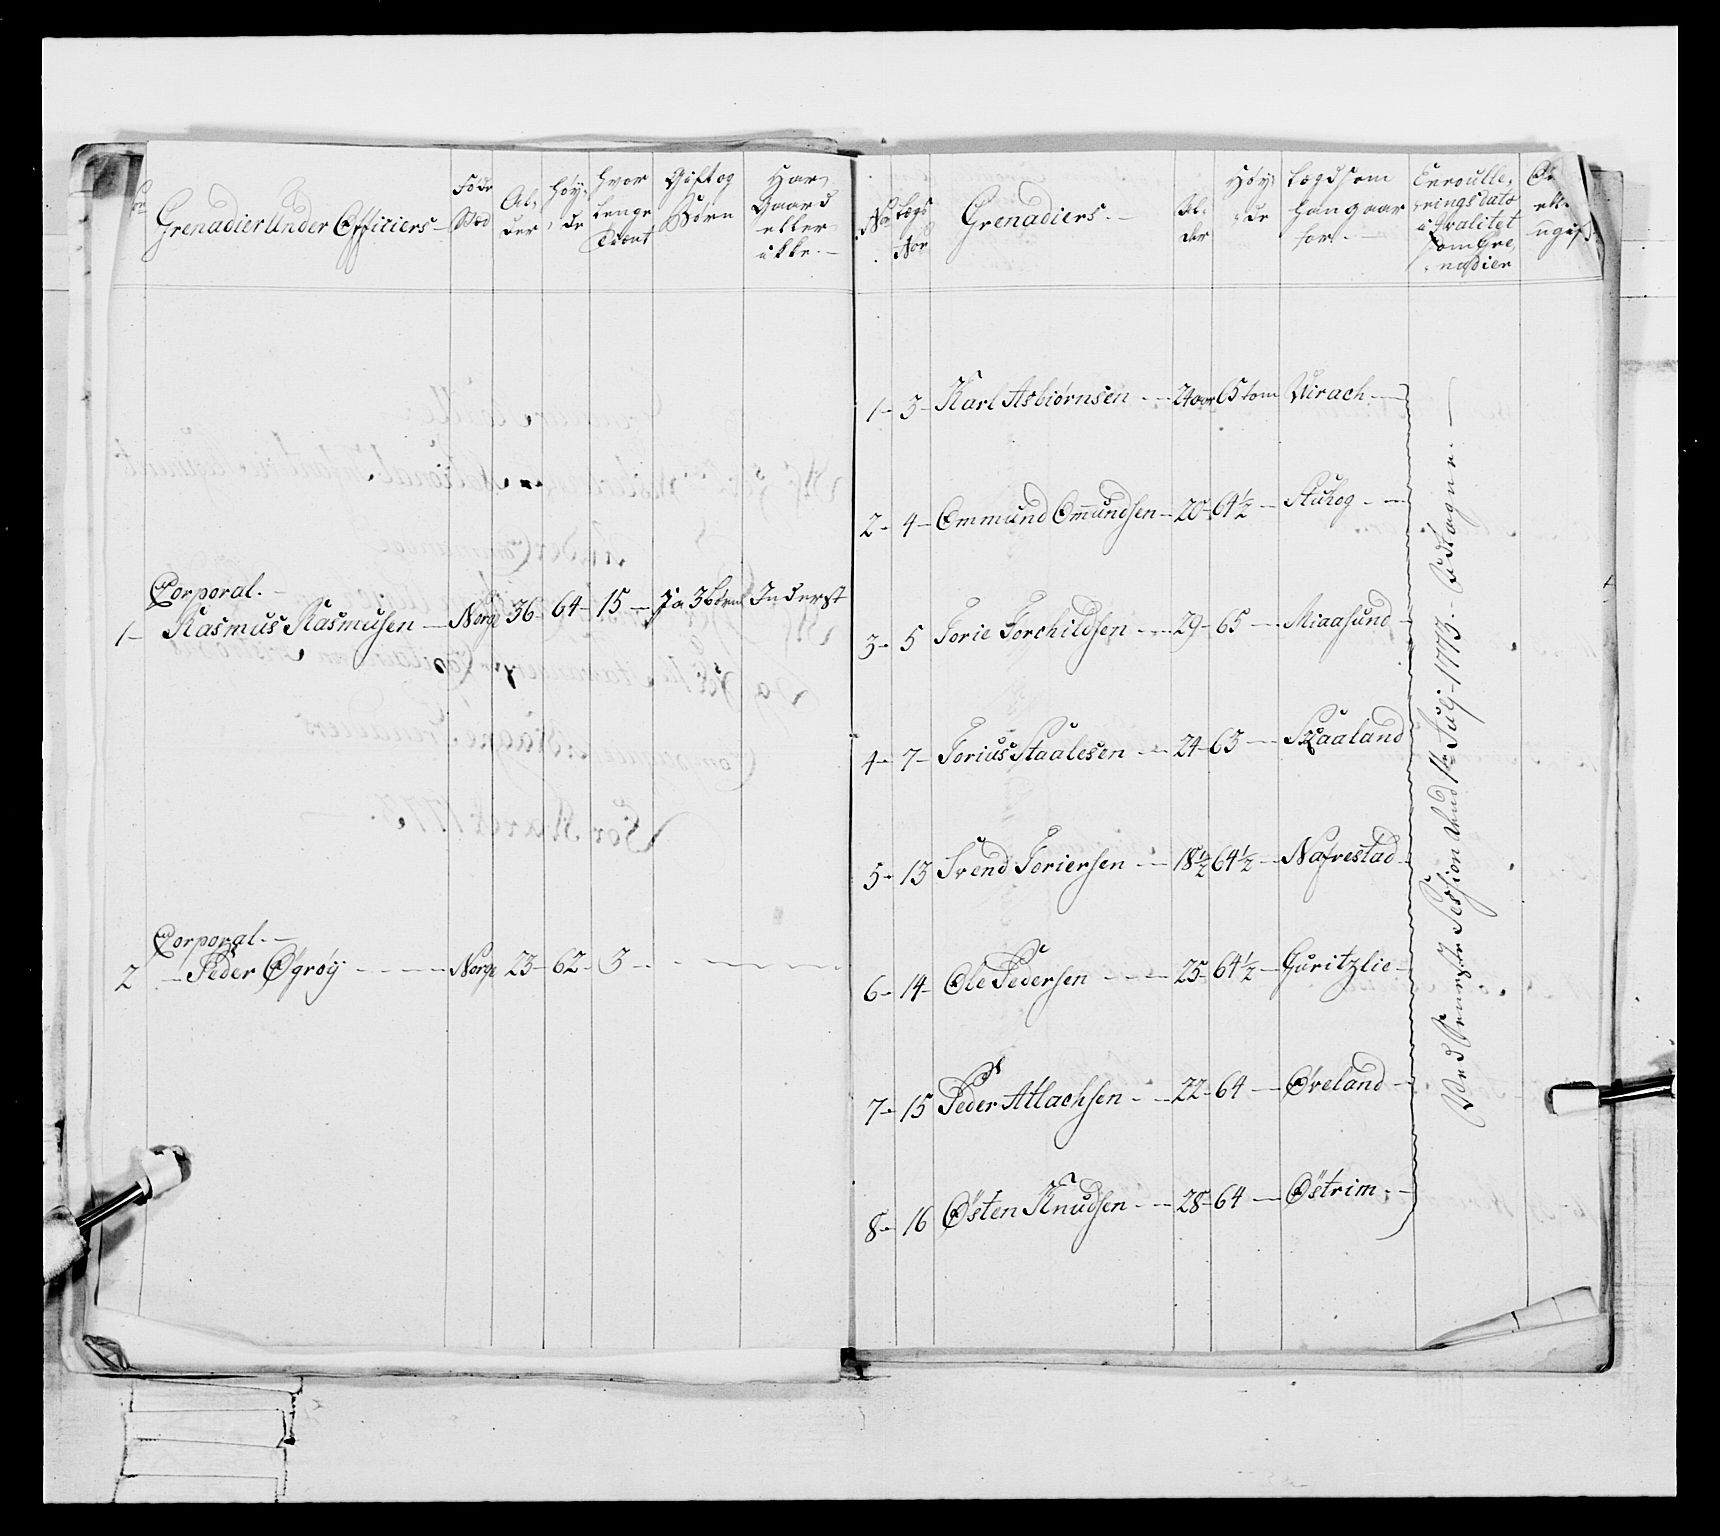 Grenadier Under Officiers
Føde
Stæd
Al-
der
Høy-
de
hvor
lenge
tient
Gift og
Børn
Har
Gaard
eller
ikke.
Corporal.
1 Rasmus Rasmusen Norge 36 64 15 Ja 3 børn Inderst
Corporal.
2 Peder Øgrøy Norge 23 62 3
No
Lægs
Nor
Grenadiers.
Al-
der
Høy-
de
Lægd som
han gaar
for.
Enroulle-
rings dato
i qvalitet
som Gre-
nadier
ugift
1 3 Karl Asbiørnsen 24 aar 65 tom Virach
2 4 Ommund Omundsen 20 64½ Stuhog
3 5 Torie Torchildsen 29 65 Miaasund
4 7 Torius Staalesen 24 63 Skaaland
5 13 Svend Toriersen 18½ 64½ Nafrestad
6 14 Ole Pedersen 25 64½ Guritzlie
7 15 Peder Atlachsen 22 64 Øveland
8 16 Østen Knudsen 28 64 Østrim.
Ved Seneste Session den 14 Julj 1773. Udtagne.